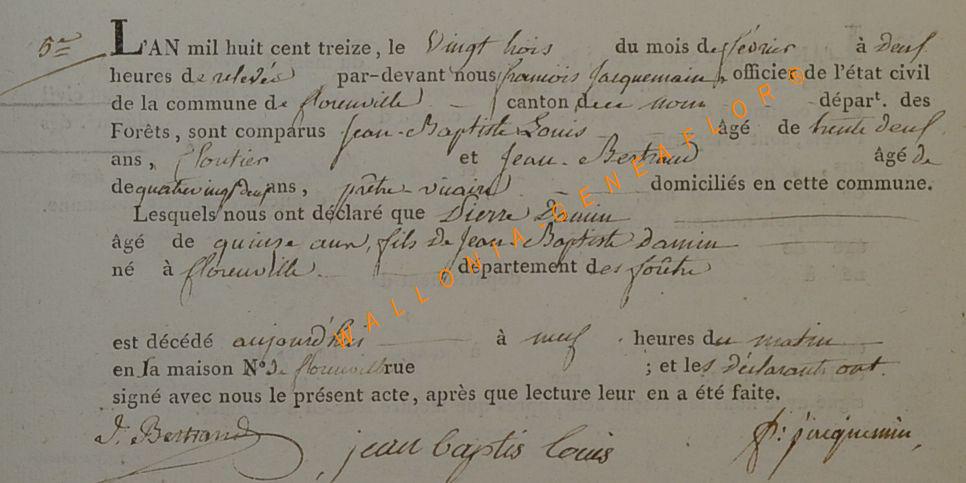 5me L'AN mil huit cent treize, le Vingt trois du mois de février à deux
heures de relevée par-devant nous françois Jacquemain, officier de l'état civil
de la commune de florenville canton de ce nom départ. des
Forêts, sont comparus Jean-Baptiste Louis âgé de trente deux
ans, et Jean-Bertrand âgé de
de quatre vingt deux ans, prêtre-vicaire domiciliés en cette commune.
Lesquels nous ont déclaré que Pierre Damin
âgé de quinze ans, fils de Jean-Baptiste damin
né à florenville, département des forêts
est décédé aujourd'hui à neuf heures du matin
en sa maison No. de florenville rue ; et les déclarants ont
signé avec nous le présent acte, après que lecture leur en a été faite.
J. Bertrand jean baptis louis f: jacquemin
WALLONIA-GENEAFLOR©